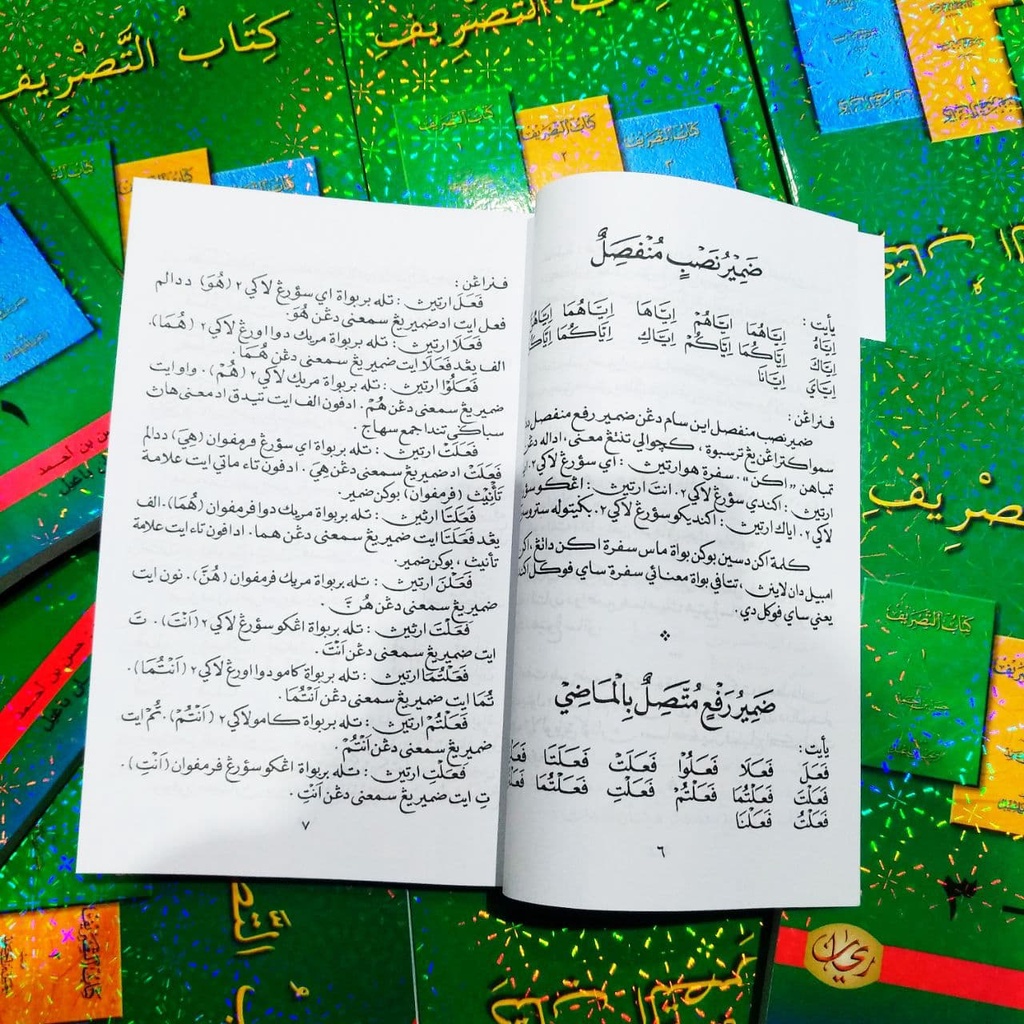 ضَمِيْرُ نَصْبٍ مُنْفَصِلٌ
يأيت :
اِيَّاهُ اِيَّاهُمَا اِيَّاهُمْ اِيَّاهَا اِيَّاهُمَا
اِيَّاكَ اِيَّاكُمَا اِيَّاكُمْ اِيَّاكِ اِيَّاكُمَا
اِيَّايَ اِيَّانَا
فنراڠن :
ضمير نصب منفصل اين سام دڠن ضمير رفع منفصل د
سمواكتراڠن يڠ ترسبوة ، كچوالي تنتڠ معنى ، اداله دڠن
تمباهن "اكن". سفرة هو ارتيڽ : اي سؤرڠ لاكي٢. اي
ارتيڽ : اكندي سؤرڠ لاكي٢. انت ارتيڽ : اڠكو سؤرڠ
لاكي٢. اياك ارتيڽ : اكنديكو سؤرڠ لاكي٢. بݢيتوله ستروسڽ
كلمة اكن دسين بوكن بواة ماس سفرة اكن داتڠ ، اكن
امبيل دان لاينڽ ، تتافي بواة معنائي سفرة ساي فوكل اكن
يعني ساي فوكل دي .
ضَمِيْرُ رَفْعٍ مُتَّصِلٌ بِالْمَاضِيْ
يأيت :
فَعَلَ فَعَلَا فَعَلُوْا فَعَلَتْ فَعَلَتَا
فَعَلْتَ فَعَلْتُمَا فَعَلْتُمْ فَعَلْتِ فَعَلْتُمَا
فَعَلْتُ فَعَلْنَا
٦
فنراڠن :
فَعَلَ ارتيڽ : تله بربواة اي سؤرڠ لاكي٢ (هُوَ) ددالم
فعل ايت اد ضمير يڠ سمعنى دڠن هُوَ.
فَعَلَا ارتيڽ : تله بربواة مريك دوا اورڠ لاكي٢ (هُمَا).
الف يڠد فَعَلَا ايت ضمير يڠ سمعنى دڠن هُمَا.
فَعَلُوْا ارتيڽ : تله بربواة مريك لاكي٢ (هُمْ). واو ايت
ضمير يڠ سمعنى دڠن هُمْ. ادفون الف ايت تيدق اد معنى هاڽ
سباكي تندا جمع سهاج .
فَعَلَتْ ارتيڽ : تله بربواة اي سؤرڠ فرمفوان (هِيَ) ددالم
فَعَلَتْ اد ضمير يڠ سمعنى دڠن هِيَ. ادفون تاء ماتي ايت علامة
تَأْنِيْث (فرمفوان) بوكن ضمير.
فَعَلَتَا ارتيڽ : تله بربواة مريك دوا فرمفوان (هُمَا). الف
يڠد فَعَلَتَا ايت ضمير يڠ سمعنى دڠن هما. ادافون تاء ايت علامة
تأنيث ، بوكن ضمير.
فَعَلْنَ ارتيڽ : تله بربواة مريك فرمفوان (هُنَّ). نون ايت
ضمير يڠ سمعنى دڠن هُنَّ .
فَعَلْتَ ارتيڽ : تله بربواة اڠكو سؤرڠ لاكي٢ (اَنْتَ). تَ
ايت ضمير يڠ سمعنى دڠن اَنْتَ.
فَعَلْتُمَا ارتيڽ : تله بربواة كامو دوا اورڠ لاكي٢ (اَنْتُمَا).
تُمَا ايت ضمير يڠ سمعنى دڠن اَنْتُمَا.
فَعَلْتُمْ ارتيڽ : تله بربواة كامو لاكي٢ (اَنْتُمْ). تُمْ ايت
ضمير يڠ سمعنى دڠن اَنْتُمْ.
فَعَلْتِ ارتيڽ : تله بربواة اڠكو سؤرڠ فرمفوان (اَنْتِ).
تِ ايت ضمير يڠ سمعنى دڠن اَنْتِ .
٧
كِتَابُ التَّصْرِيفِ